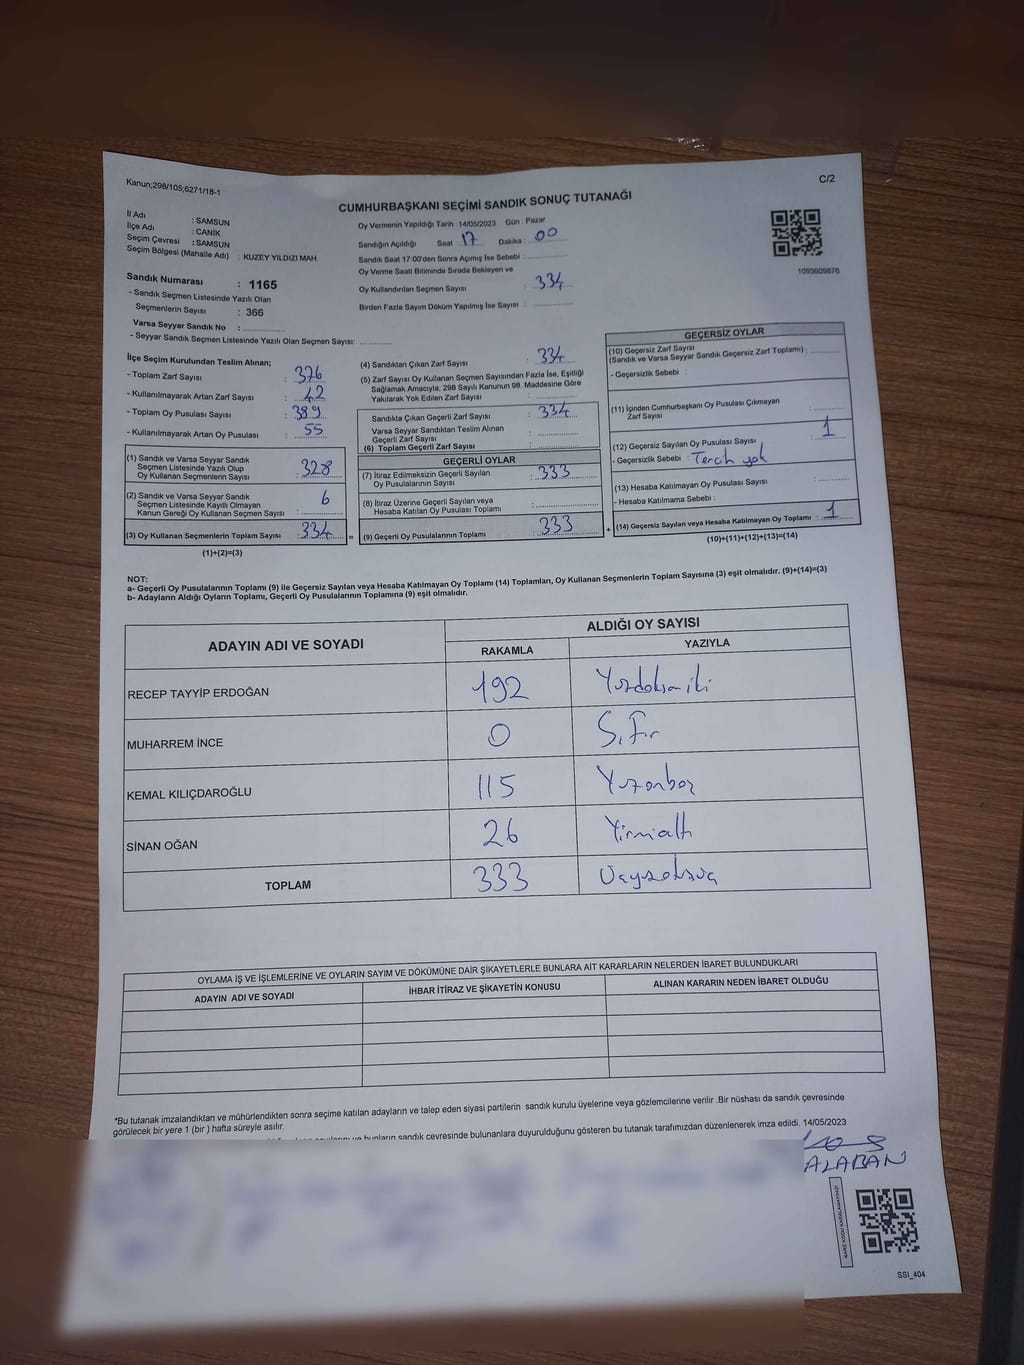 Kanun;298/105;6271/18-1
C/2
CUMHURBAŞKANI SEÇİMİ SANDIK SONUÇ TUTANAĞI
İl Adı : SAMSUN
İlçe Adı : CANİK
Seçim Çevresi : SAMSUN
Seçim Bölgesi (Mahalle Adı) : KUZEY YILDIZI MAH.
Sandık Numarası : 1165
- Sandık Seçmen Listesinde Yazılı Olan
Seçmenlerin Sayısı : 366
Varsa Seyyar Sandık No :
- Seyyar Sandık Seçmen Listesinde Yazılı Olan Seçmen Sayısı:
Oy Vermenin Yapıldığı Tarih :14/05/2023 Gün : Pazar
Sandığın Açıldığı Saat 17 Dakika : 00
Sandık Saat 17:00'den Sonra Açımış İse Sebebi :
Oy Verme Saati Bitiminde Sırada Bekleyen ve
Oy Kullandırılan Seçmen Sayısı : 334
Birden Fazla Sayım Döküm Yapılmış İse Sayısı :
1093609876
İlçe Seçim Kurulundan Teslim Alınan;
- Toplam Zarf Sayısı : 376
- Kullanılmayarak Artan Zarf Sayısı : 42
- Toplam Oy Pusulası Sayısı : 389
- Kullanılmayarak Artan Oy Pusulası : 55
(1) Sandık ve Varsa Seyyar Sandık
Seçmen Listesinde Yazılı Olup
Oy Kullanan Seçmenlerin Sayısı : 328
(2) Sandık ve Varsa Seyyar Sandık
Seçmen Listesinde Kayıtlı Olmayan
Kanun Gereği Oy Kullanan Seçmen Sayısı : 6
(3) Oy Kullanan Seçmenlerin Toplam Sayısı : 334 =
(1)+(2)=(3)
(4) Sandıktan Çıkan Zarf Sayısı : 334
(5) Zarf Sayısı Oy Kullanan Seçmen Sayısından Fazla İse, Eşitliği
Sağlamak Amacıyla, 298 Sayılı Kanunun 98. Maddesine Göre
Yakılarak Yok Edilen Zarf Sayısı :
Sandıkta Çıkan Geçerli Zarf Sayısı : 334
Varsa Seyyar Sandıktan Teslim Alınan
Geçerli Zarf Sayısı :
(6) Toplam Geçerli Zarf Sayısı :
GEÇERLİ OYLAR
(7) İtiraz Edilmeksizin Geçerli Sayılan
Oy Pusulasının Sayısı : 333
(8) İtiraz Üzerine Geçerli Sayılan veya
Hesaba Katılan Oy Pusulası Toplamı :
(9) Geçerli Oy Pusulalarının Toplamı : 333 +
GEÇERSİZ OYLAR
(10) Geçersiz Zarf Sayısı
(Sandık ve Varsa Seyyar Sandık Geçersiz Zarf Toplamı) :
- Geçersizlik Sebebi :
(11) İçinden Cumhurbaşkanı Oy Pusulası Çıkmayan
Zarf Sayısı :
(12) Geçersiz Sayılan Oy Pusulası Sayısı : 1
- Geçersizlik Sebebi : Tercih yok
(13) Hesaba Katılmayan Oy Pusulası Sayısı :
- Hesaba Katılmama Sebebi :
(14) Geçersiz Sayılan veya Hesaba Katılmayan Oy Toplamı : 1
(10)+(11)+(12)+(13)=(14)
NOT:
a- Geçerli Oy Pusulalarının Toplamı (9) ile Geçersiz Sayılan veya Hesaba Katılmayan Oy Toplamı (14) Toplamları, Oy Kullanan Seçmenlerin Toplam Sayısına (3) eşit olmalıdır. (9)+(14)=(3)
b- Adayların Aldığı Oyların Toplamı, Geçerli Oy Pusulalarının Toplamına (9) eşit olmalıdır.
ADAYIN ADI VE SOYADI ALDIĞI OY SAYISI
RAKAMLA YAZIYLA
RECEP TAYYİP ERDOĞAN 192 Yüzdoksaniki
MUHARREM İNCE 0 Sıfır
KEMAL KILIÇDAROĞLU 115 Yüzonbeş
SİNAN OĞAN 26 Yirmialtı
TOPLAM 333 Üçyüzotuzüç
OYLAMA İŞ VE İŞLEMLERİNE VE OYLARIN SAYIM VE DÖKÜMÜNE DAİR ŞİKAYETLERLE BUNLARA AİT KARARLARIN NELERDEN İBARET BULUNDUKLARI
ADAYIN ADI VE SOYADI İHBAR İTİRAZ VE ŞİKAYETİN KONUSU ALINAN KARARIN NEDEN İBARET OLDUĞU
*Bu tutanak imzalandıktan ve mühürlendikten sonra seçime katılan adayların ve talep eden siyasi partilerin sandık kurulu üyelerine veya gözlemcilerine verilir .Bir nüshası da sandık çevresinde
görülecek bir yere 1 (bir ) hafta süreyle asılır.
bunların sandık çevresinde bulunanlara duyurulduğunu gösteren bu tutanak tarafımızdan düzenlenerek imza edildi. 14/05/2023
ALABAN
SSI_404